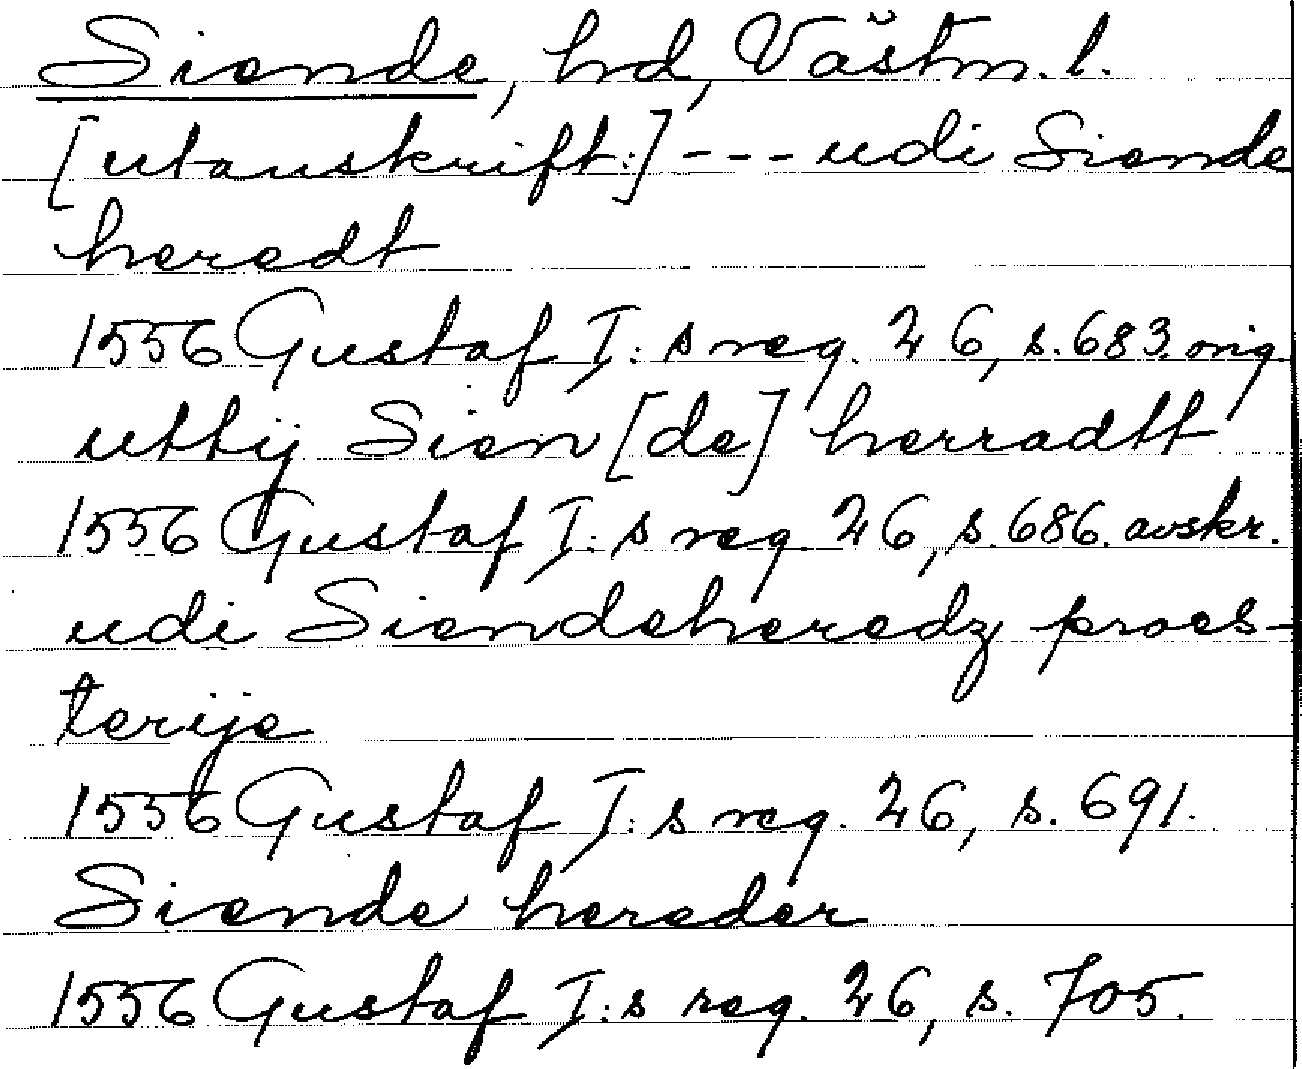 Siende, hd, Västm. l.
[utanskrift:] --- udi Siende
heredt
1556 Gustaf I:s reg. 26, s. 683. orig.
uttij Sien[de] herradtt
1556 Gustaf I:s reg. 26, s. 686. avskr.
udi Siendeheredz proes-
terije
1556 Gustaf I:s reg. 26, s. 691.
Siende hereder
1556 Gustaf I:s reg. 26, s. 705.